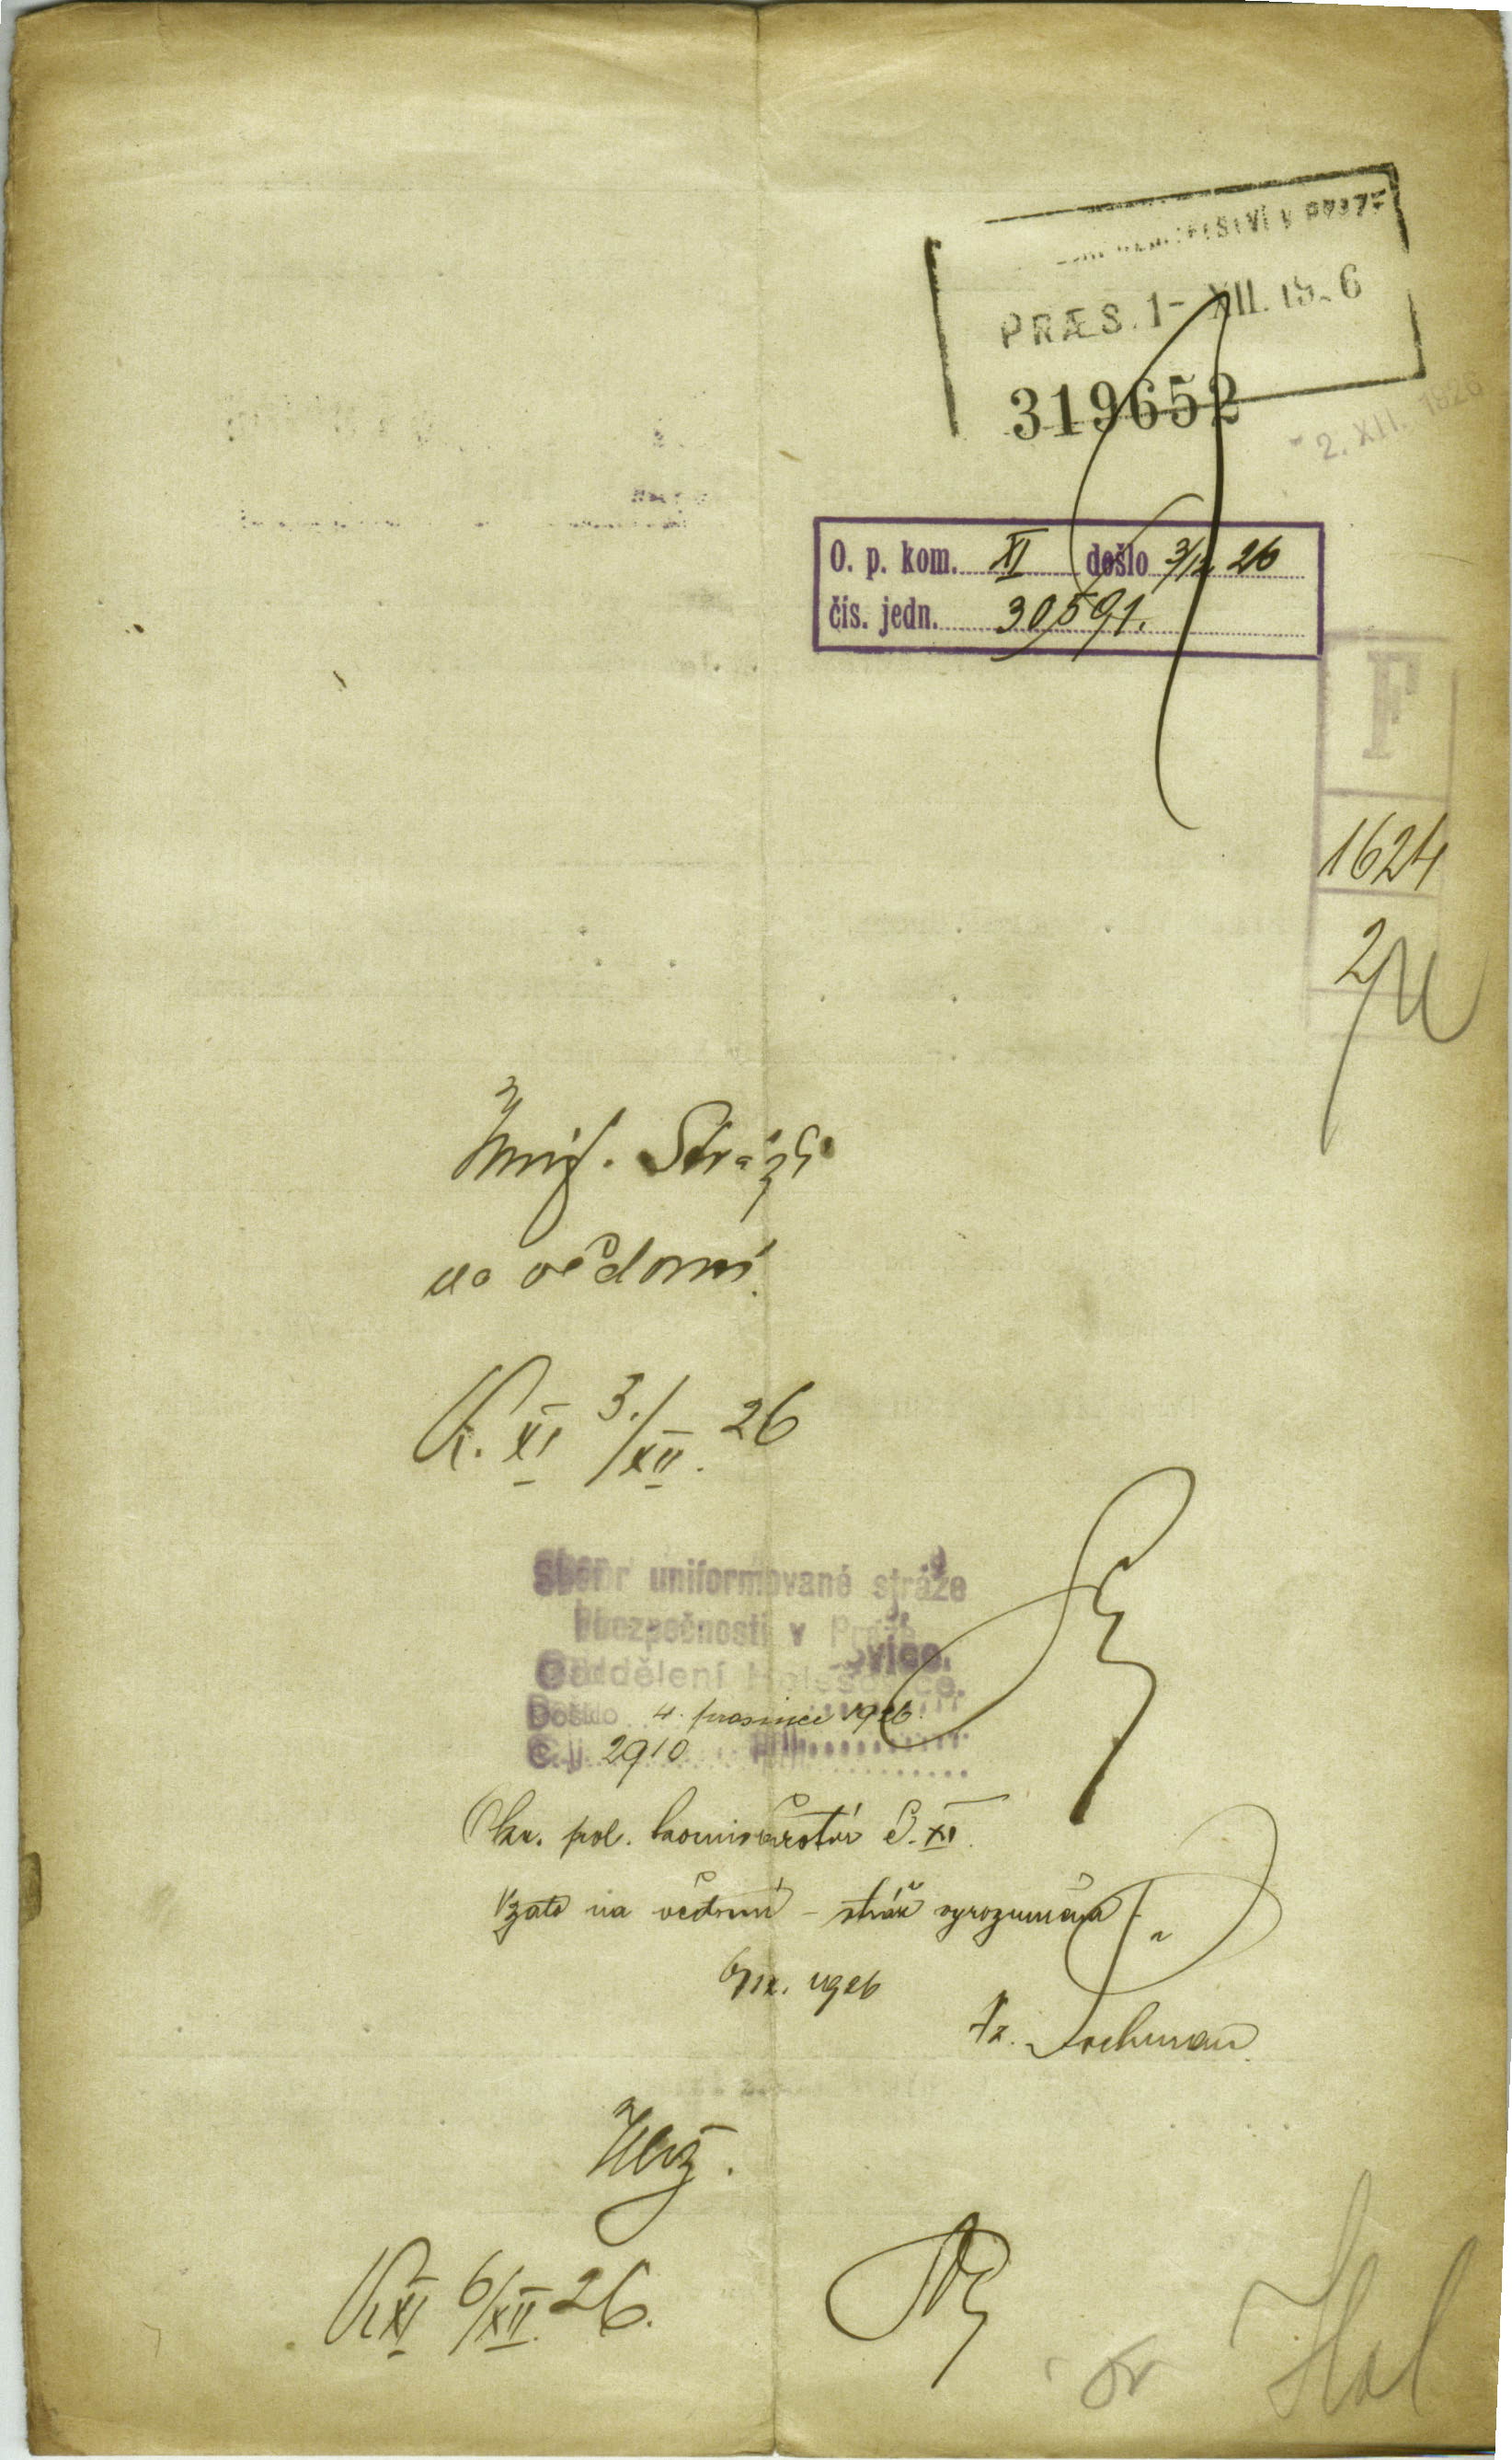 PRÆS. 1- XII. 19 6
319652
2. XII. 1926
O. p. kom. XI došlo 3/12 26
čís. jedn. 30591.
F
1624
2
Unif. Stráži
na vědomí.
K. XI 3./XII. 26
Sbor uniformované stráže
bezpečnosti v Praze
Oddělení Holešovice.
Došlo 4. prosince 1926
Č.j. 2910
Okr. pol. komisařství č. XI.
Vzato na vědomí – stráž vyrozuměna.
6/12. 1926
K XI 6/XII. 26.